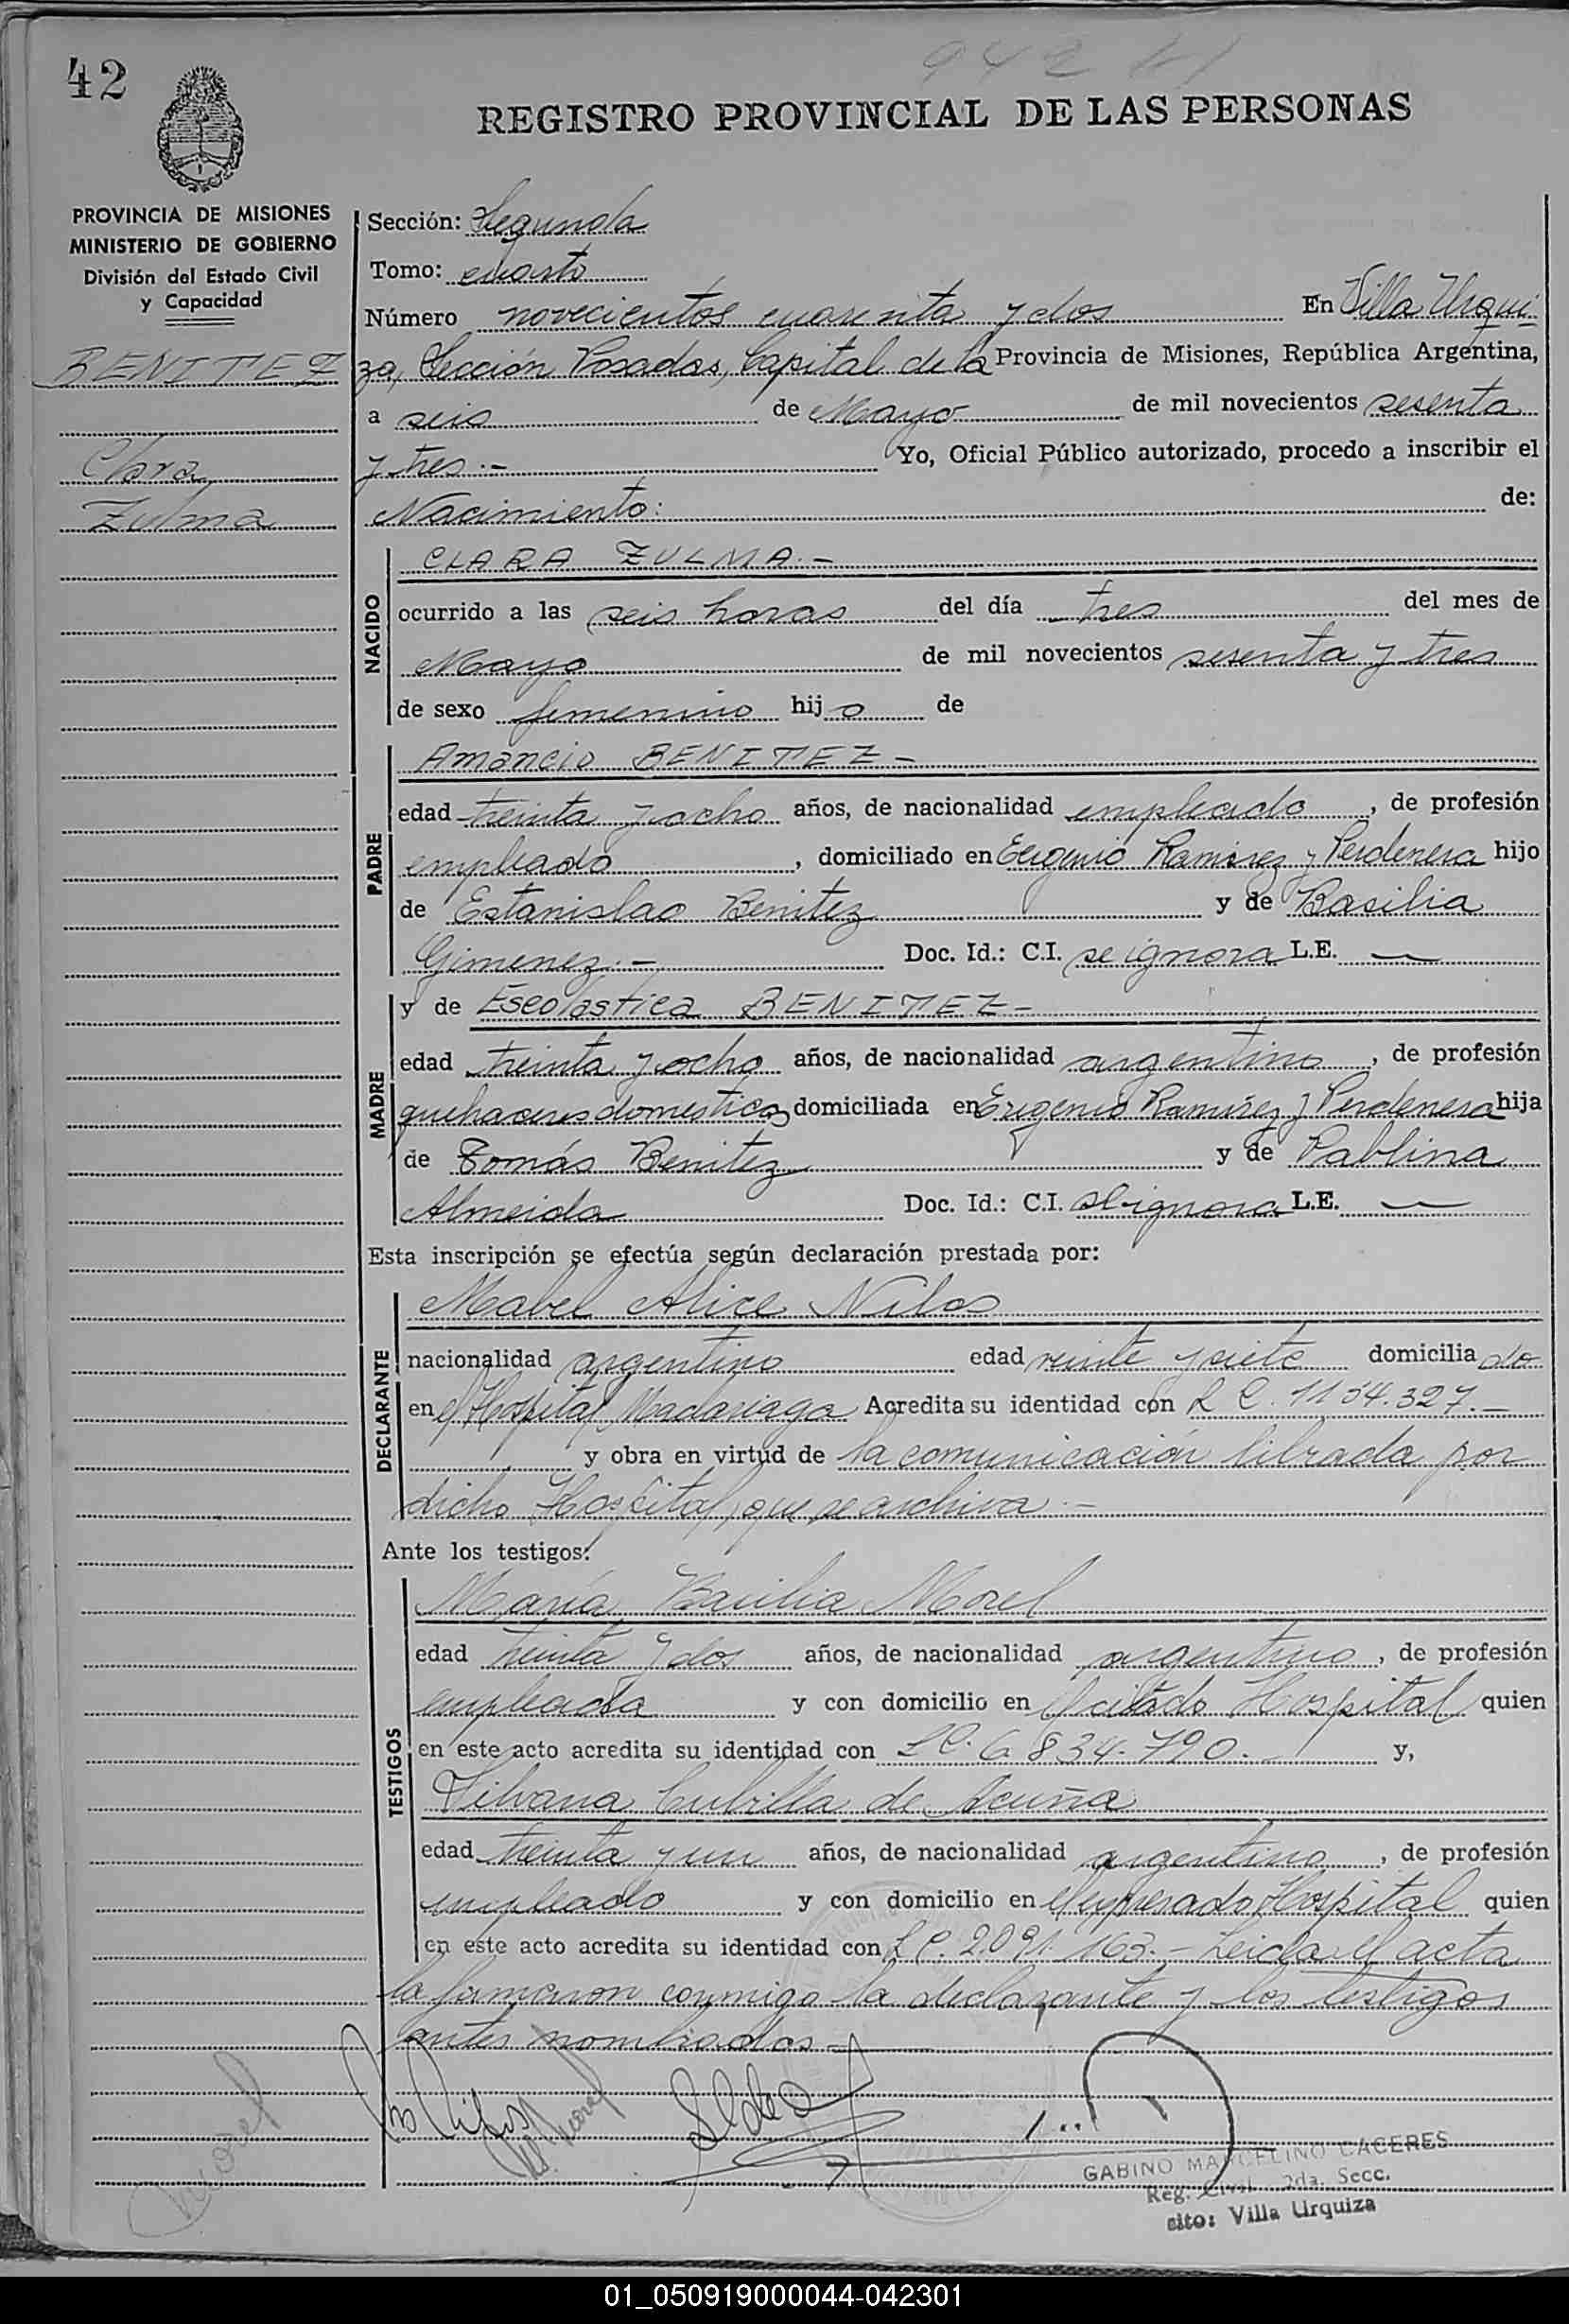 42
942
REGISTRO PROVINCIAL DE LAS PERSONAS
PROVINCIA DE MISIONES
MINISTERIO DE GOBIERNO
División del Estado Civil
y Capacidad
BENITEZ
Clara
Zulma
Sección: Segunda
Tomo: cuarto
Número novecientos cuarenta y dos En Villa Urqui-
za, Sección Posadas, Capital de la Provincia de Misiones, República Argentina,
a seis de Mayo de mil novecientos sesenta
y tres.- Yo, Oficial Público autorizado, procedo a inscribir el
Nacimiento: de:
NACIDO
CLARA ZULMA.-
ocurrido a las seis horas del día tres del mes de
Mayo de mil novecientos sesenta y tres
de sexo femenino hijo de
PADRE
Amancio BENITEZ-
edad treinta y ocho años, de nacionalidad empleado, de profesión
empleado, domiciliado en Eugenio Ramirez y Perdenera hijo
de Estanislao Benitez y de Basilia
Gimenez.- Doc. Id.: C.I. se ignora L.E. —
MADRE
y de Escolastica BENITEZ-
edad treinta y ocho años, de nacionalidad argentino, de profesión
quehaceres domesticos domiciliada en Eugenio Ramirez y Perdenera hija
de Tomás Benitez y de Pablina
Almeida Doc. Id.: C.I. se ignora L.E. —
Esta inscripción se efectúa según declaración prestada por:
DECLARANTE
Mabel Alice Nilos
nacionalidad argentino edad veinte y siete domiciliado
en el Hospital Madariaga Acredita su identidad con L C. 1154.327.-
y obra en virtud de la comunicación librada por
dicho Hospital, que se archiva.-
Ante los testigos:
TESTIGOS
María Basilia Morel
edad treinta y dos años, de nacionalidad argentino, de profesión
empleada y con domicilio en el citado Hospital quien
en este acto acredita su identidad con L C. 6 834.790.- y,
Silvana Cubilla de Acuña
edad treinta y un años, de nacionalidad argentino, de profesión
empleado y con domicilio en el expresado Hospital quien
en este acto acredita su identidad con L C. 2.091.163.- Leida el acta
la firmaron conmigo la declarante y los testigos
antes nombrados
Morel
GABINO MARCELINO CACERES
Reg. Civil 2da. Secc.
sito: Villa Urquiza
01_050919000044-042301